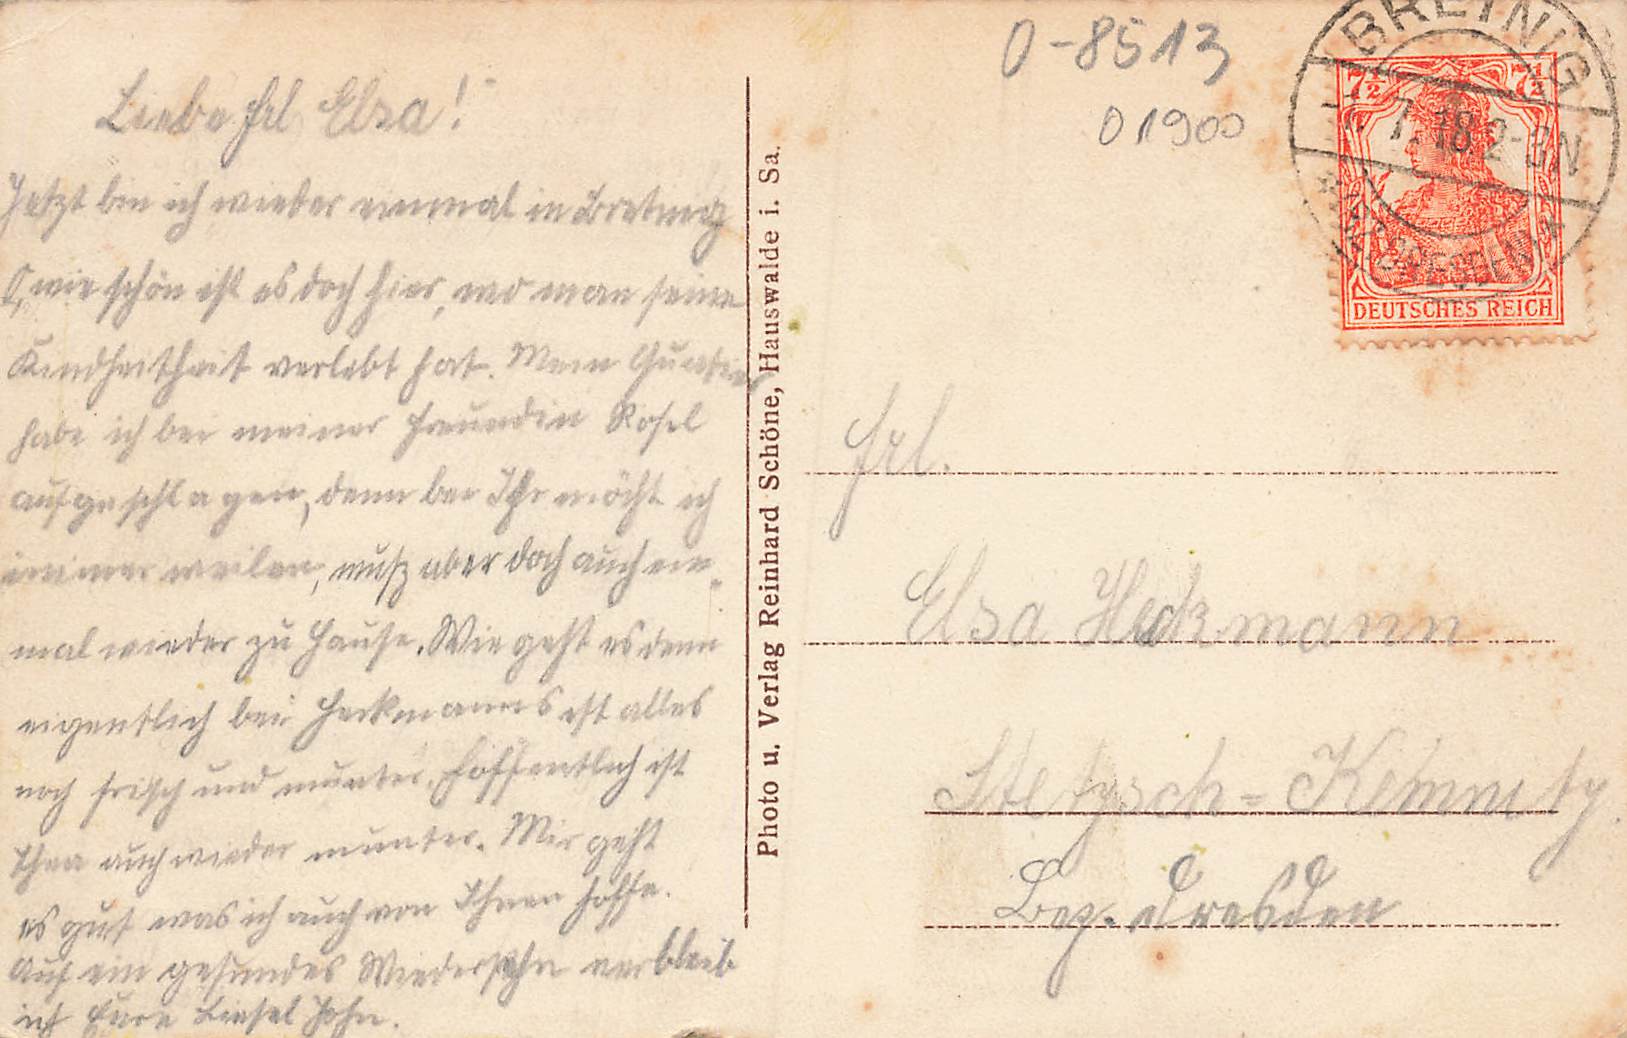 Liebe Frl Elsa!
Jetzt bin ich wieder einmal in Bretnig
O, wie schön ist es doch hier, wo man seine
Kindheitheit verlebt hat. Mein Quatier
habe ich bei meiner Freundin Rosel
aufgeschlagen, denn bei Ihr möcht ich
immer weilen, muß aber doch auch ein-
mal wieder zu Hause. Wie geht es denn
eigentlich bei Heckmanns ist alles
noch frisch und munter. Hoffentlich ist
Thea auch wieder munter. Mir geht
es gut was ich auch von Ihnen hoffe.
Auf ein gesundes Wiedersehn verbleib
ich Eure Liesel John.
Photo u. Verlag Reinhard Schöne, Hauswalde i. Sa.
0-8513
01900
BRETNIG
7. 18. 2-3N
7½ 7½
DEUTSCHES REICH
Frl.
Elsa Heckmann
Stetzsch=Kemnitz
Bez. Dresden